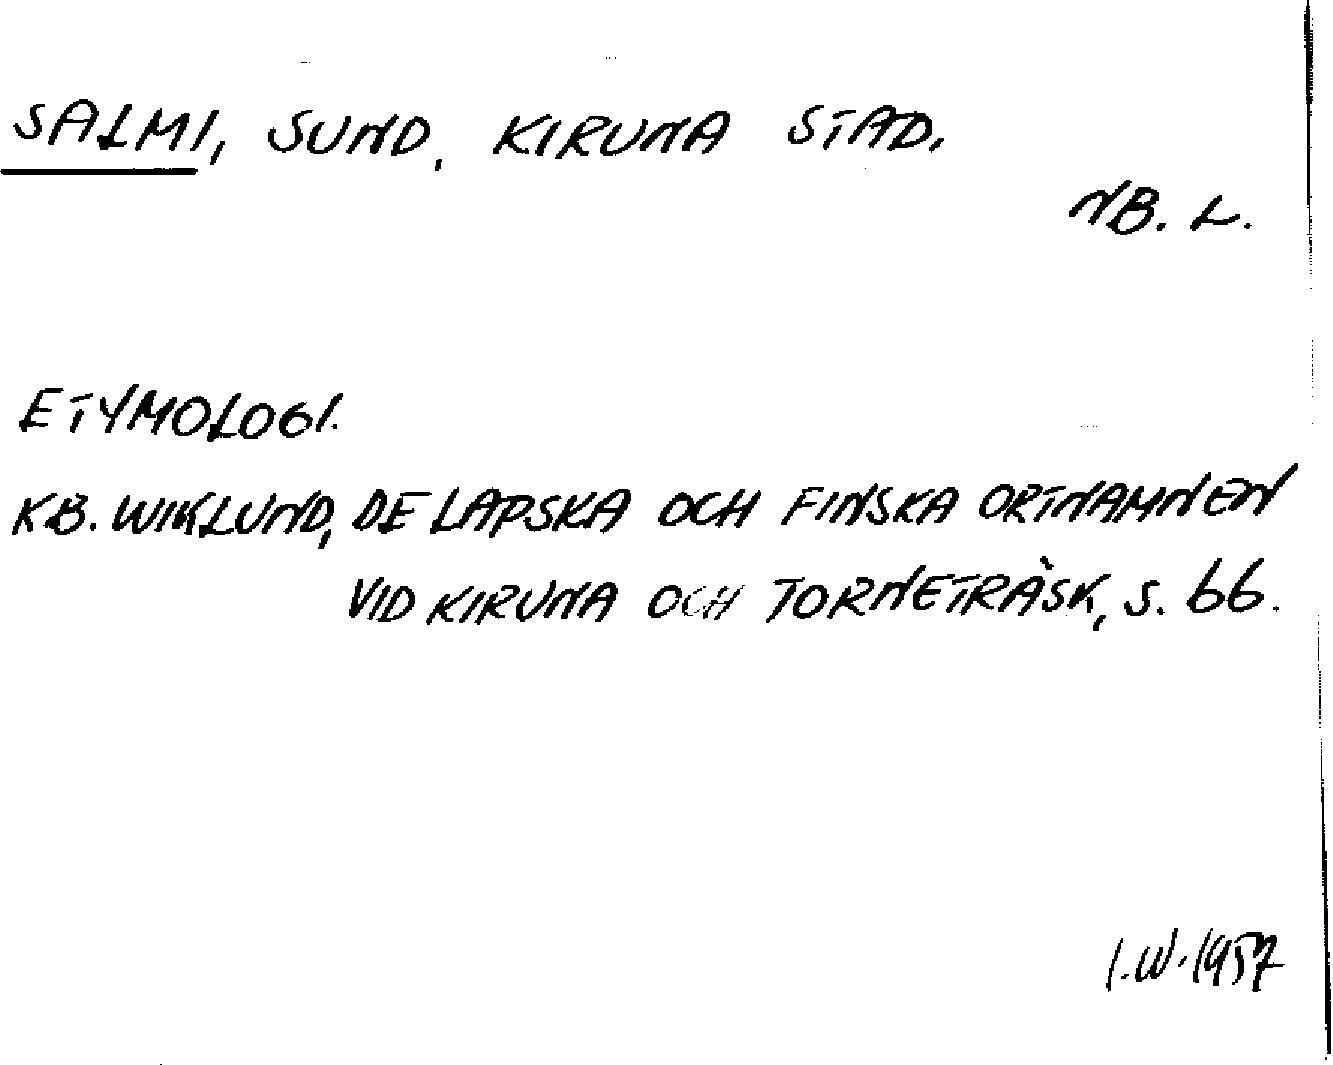 SALMI, SUND, KIRUNA STAD.
NB. L.
ETYMOLOGI.
KB. WIKLUND, DE LAPSKA OCH FINSKA ORTNAMNEN
VID KIRUNA OCH TORNETRÄSK, S. 66.
I.W. 1957